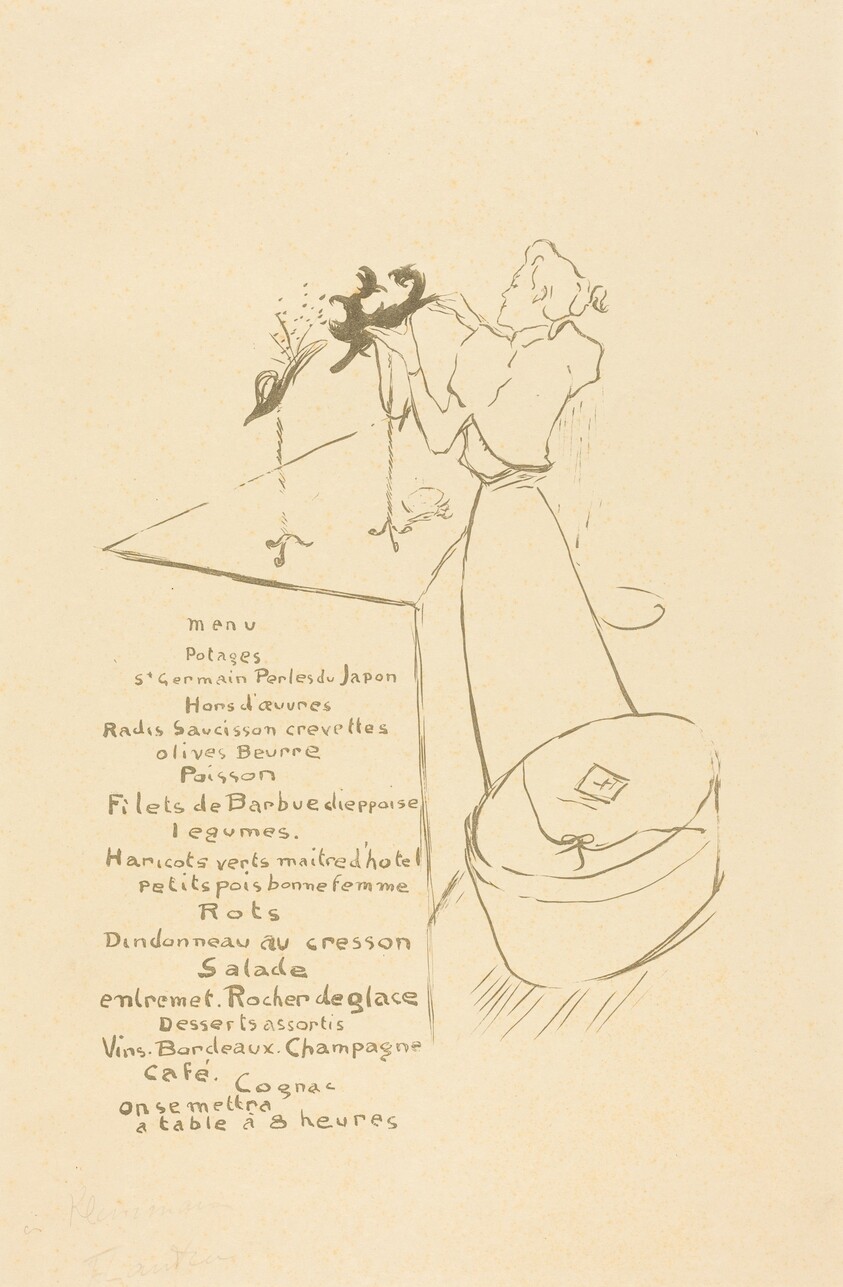 menu
Potages
St Germain Perles du Japon
Hors d'œuvres
Radis Saucisson crevettes
olives Beurre
Poisson
Filets de Barbue dieppoise
legumes.
Haricots verts maitre d'hotel
petits pois bonne femme
Rots
Dindonneau au cresson
Salade
entremet. Rocher de glace
Desserts assortis
Vins. Bordeaux. Champagne
Café. Cognac
on se mettra
a table à 8 heures